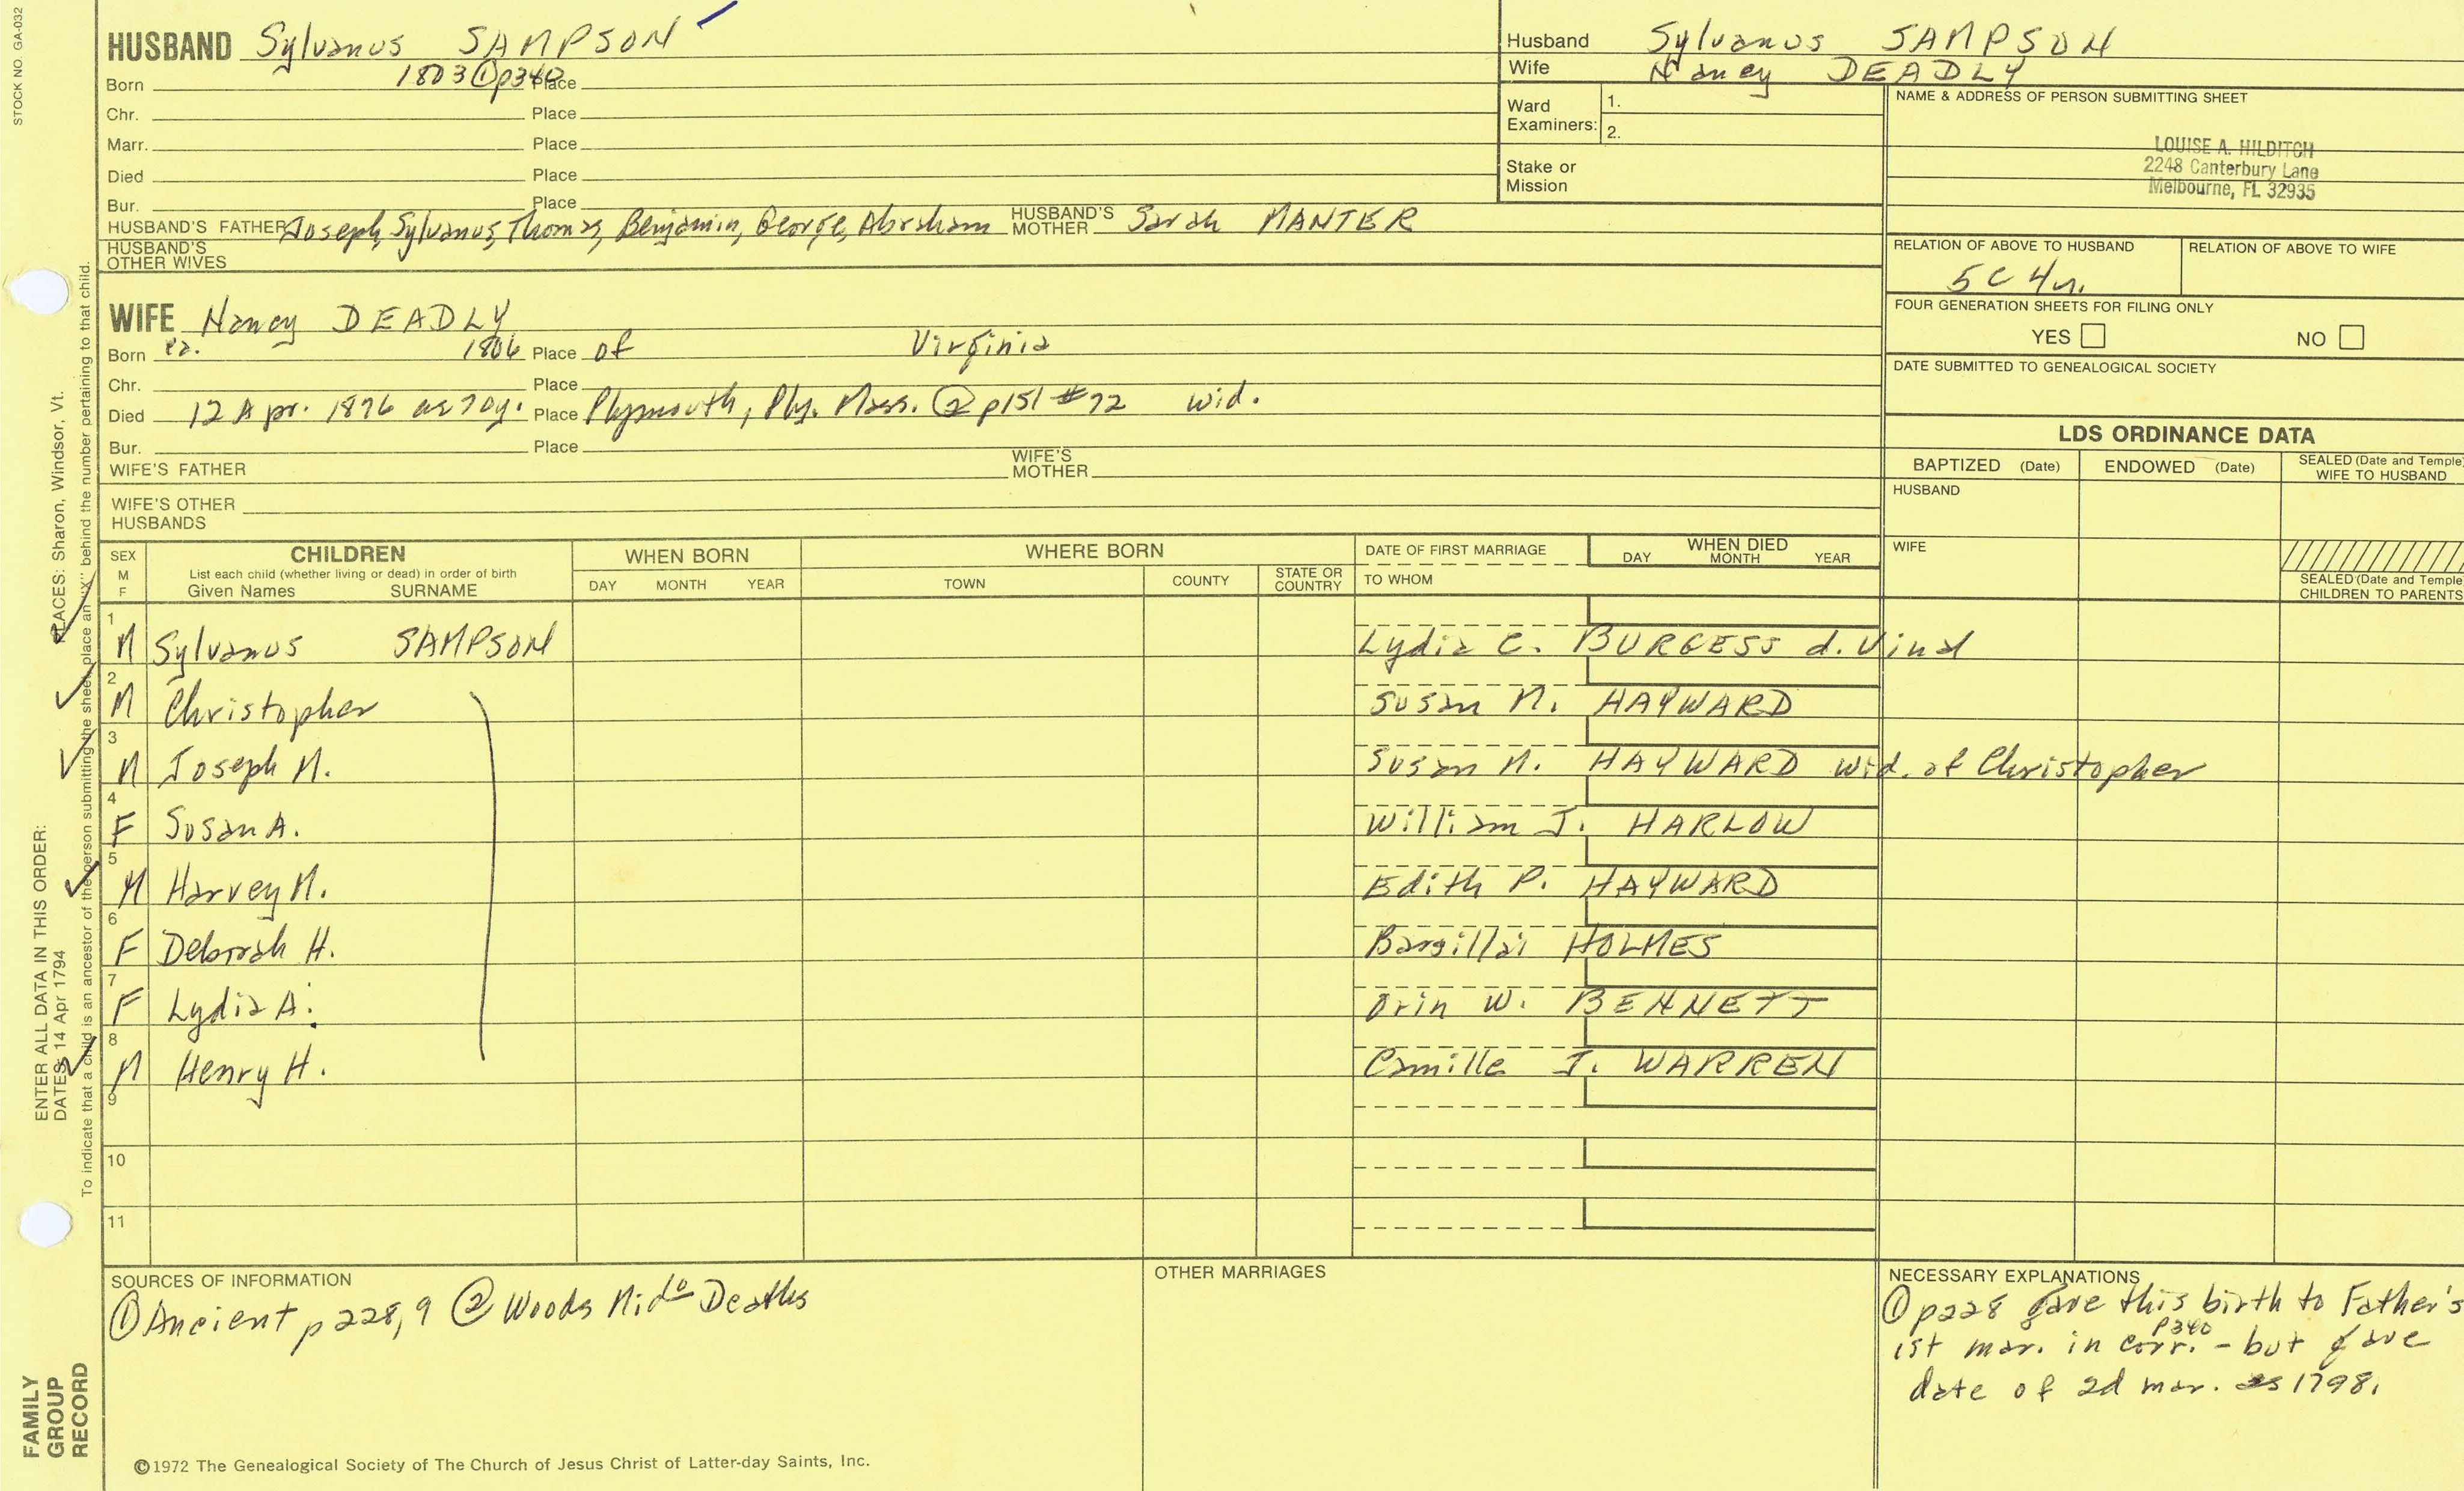 STOCK NO. GA-032
HUSBAND Sylvanus SAMPSON
Born 1803 ① p340 Place
Chr. Place
Marr. Place
Died Place
Bur. Place
HUSBAND'S FATHER Joseph, Sylvanus, Thomas, Benjamin, George, Abraham HUSBAND'S MOTHER Sarah MANTER
HUSBAND'S OTHER WIVES
Husband Sylvanus SAMPSON
Wife Nancy DEADLY
Ward Examiners: 1.
2.
Stake or Mission
NAME & ADDRESS OF PERSON SUBMITTING SHEET
LOUISE A. HILDITCH
2248 Canterbury Lane
Melbourne, FL 32935
RELATION OF ABOVE TO HUSBAND RELATION OF ABOVE TO WIFE
5C 4r.
FOUR GENERATION SHEETS FOR FILING ONLY
YES NO
DATE SUBMITTED TO GENEALOGICAL SOCIETY
WIFE Nancy DEADLY
Born ca. 1806 Place of Virginia
Chr. Place
Died 12 Apr. 1876 ae 70y. Place Plymouth, Ply. Mass. ② p151 #72 wid.
Bur. Place
WIFE'S FATHER WIFE'S MOTHER
WIFE'S OTHER HUSBANDS
LDS ORDINANCE DATA
BAPTIZED (Date) ENDOWED (Date) SEALED (Date and Temple) WIFE TO HUSBAND
HUSBAND
WIFE
SEALED (Date and Temple) CHILDREN TO PARENTS
SEX M F CHILDREN WHEN BORN WHERE BORN DATE OF FIRST MARRIAGE WHEN DIED
List each child (whether living or dead) in order of birth
Given Names SURNAME DAY MONTH YEAR TOWN COUNTY STATE OR COUNTRY TO WHOM DAY MONTH YEAR
1 M Sylvanus SAMPSON Lydia C. BURGESS d. Vinal
2 M Christopher Susan M. HAYWARD
3 M Joseph M. Susan M. HAYWARD wid. of Christopher
4 F Susan A. William J. HARLOW
5 M Harvey M. Edith P. HAYWARD
6 F Deborah H. Barzillai HOLMES
7 F Lydia A. Orin W. BENNETT
8 M Henry H. Camille J. WARREN
9
10
11
SOURCES OF INFORMATION
① Ancient p 228,9 ② Woods Deaths
OTHER MARRIAGES
NECESSARY EXPLANATIONS
① p228 gave this birth to Father's
1st mar. in corr. p340 - but gave
date of 2d mar. as 1798.
ENTER ALL DATA IN THIS ORDER:
DATES: 14 Apr 1794 PLACES: Sharon, Windsor, Vt.
To indicate that a child is an ancestor of the person submitting the sheet, place an "X" behind the number pertaining to that child.
FAMILY
GROUP
RECORD
©1972 The Genealogical Society of The Church of Jesus Christ of Latter-day Saints, Inc.